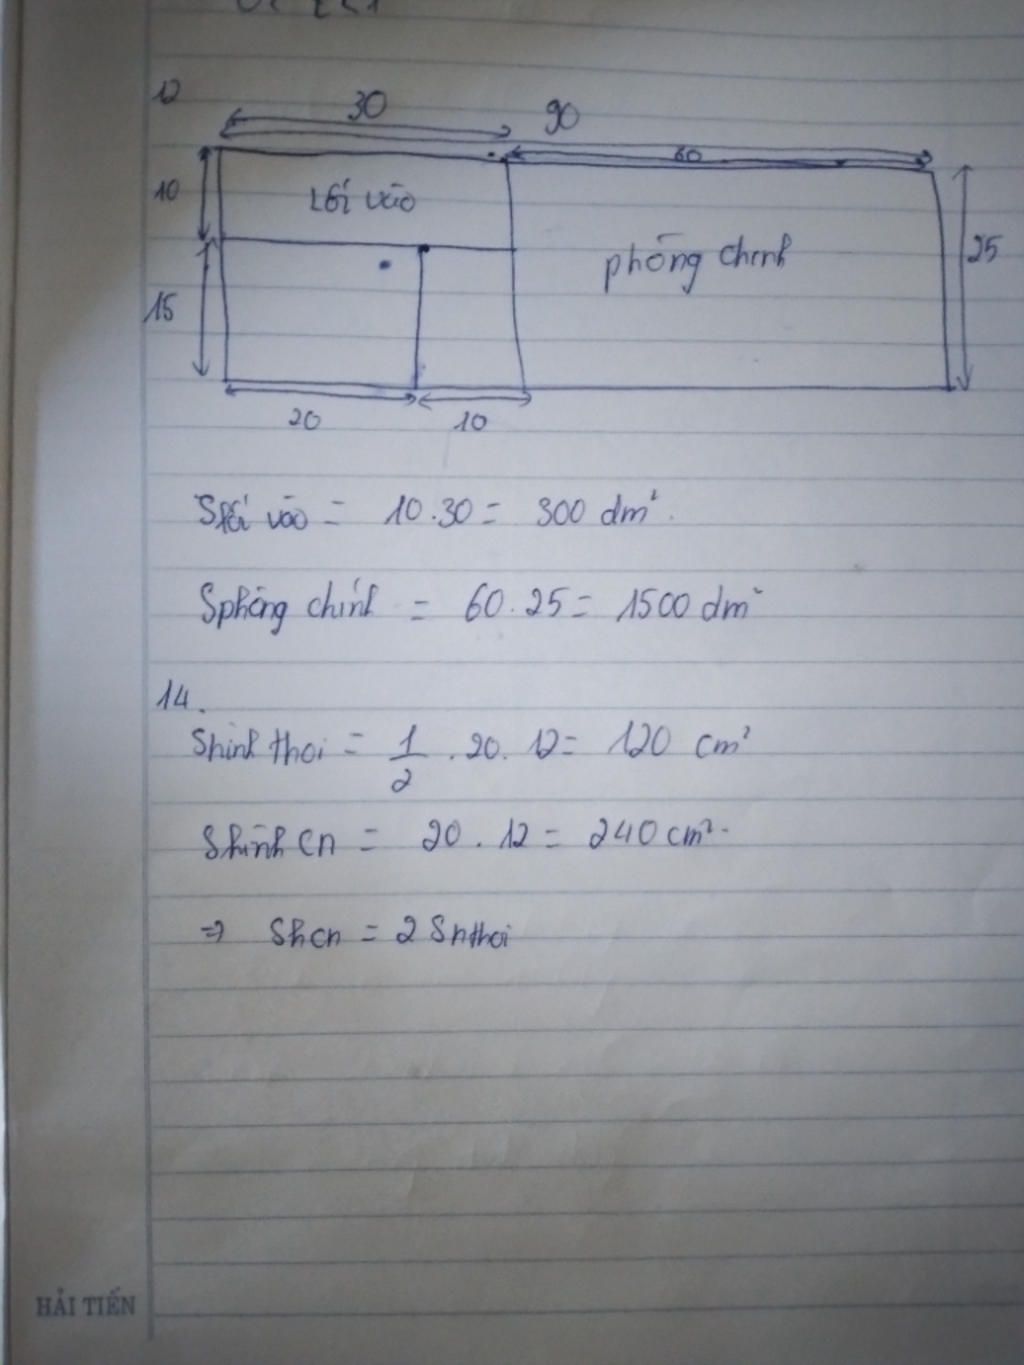 12
30
90
60
10
Lối vào
phòng chính
25
15
20
10
Slối vào = 10.30 = 300 dm²
Sphòng chính = 60.25 = 1500 dm²
14.
Shình thoi = 1/2 . 20. 12 = 120 cm²
Shình cn = 20 . 12 = 240 cm²
⇒ Shcn = 2 Shthoi
HẢI TIẾN